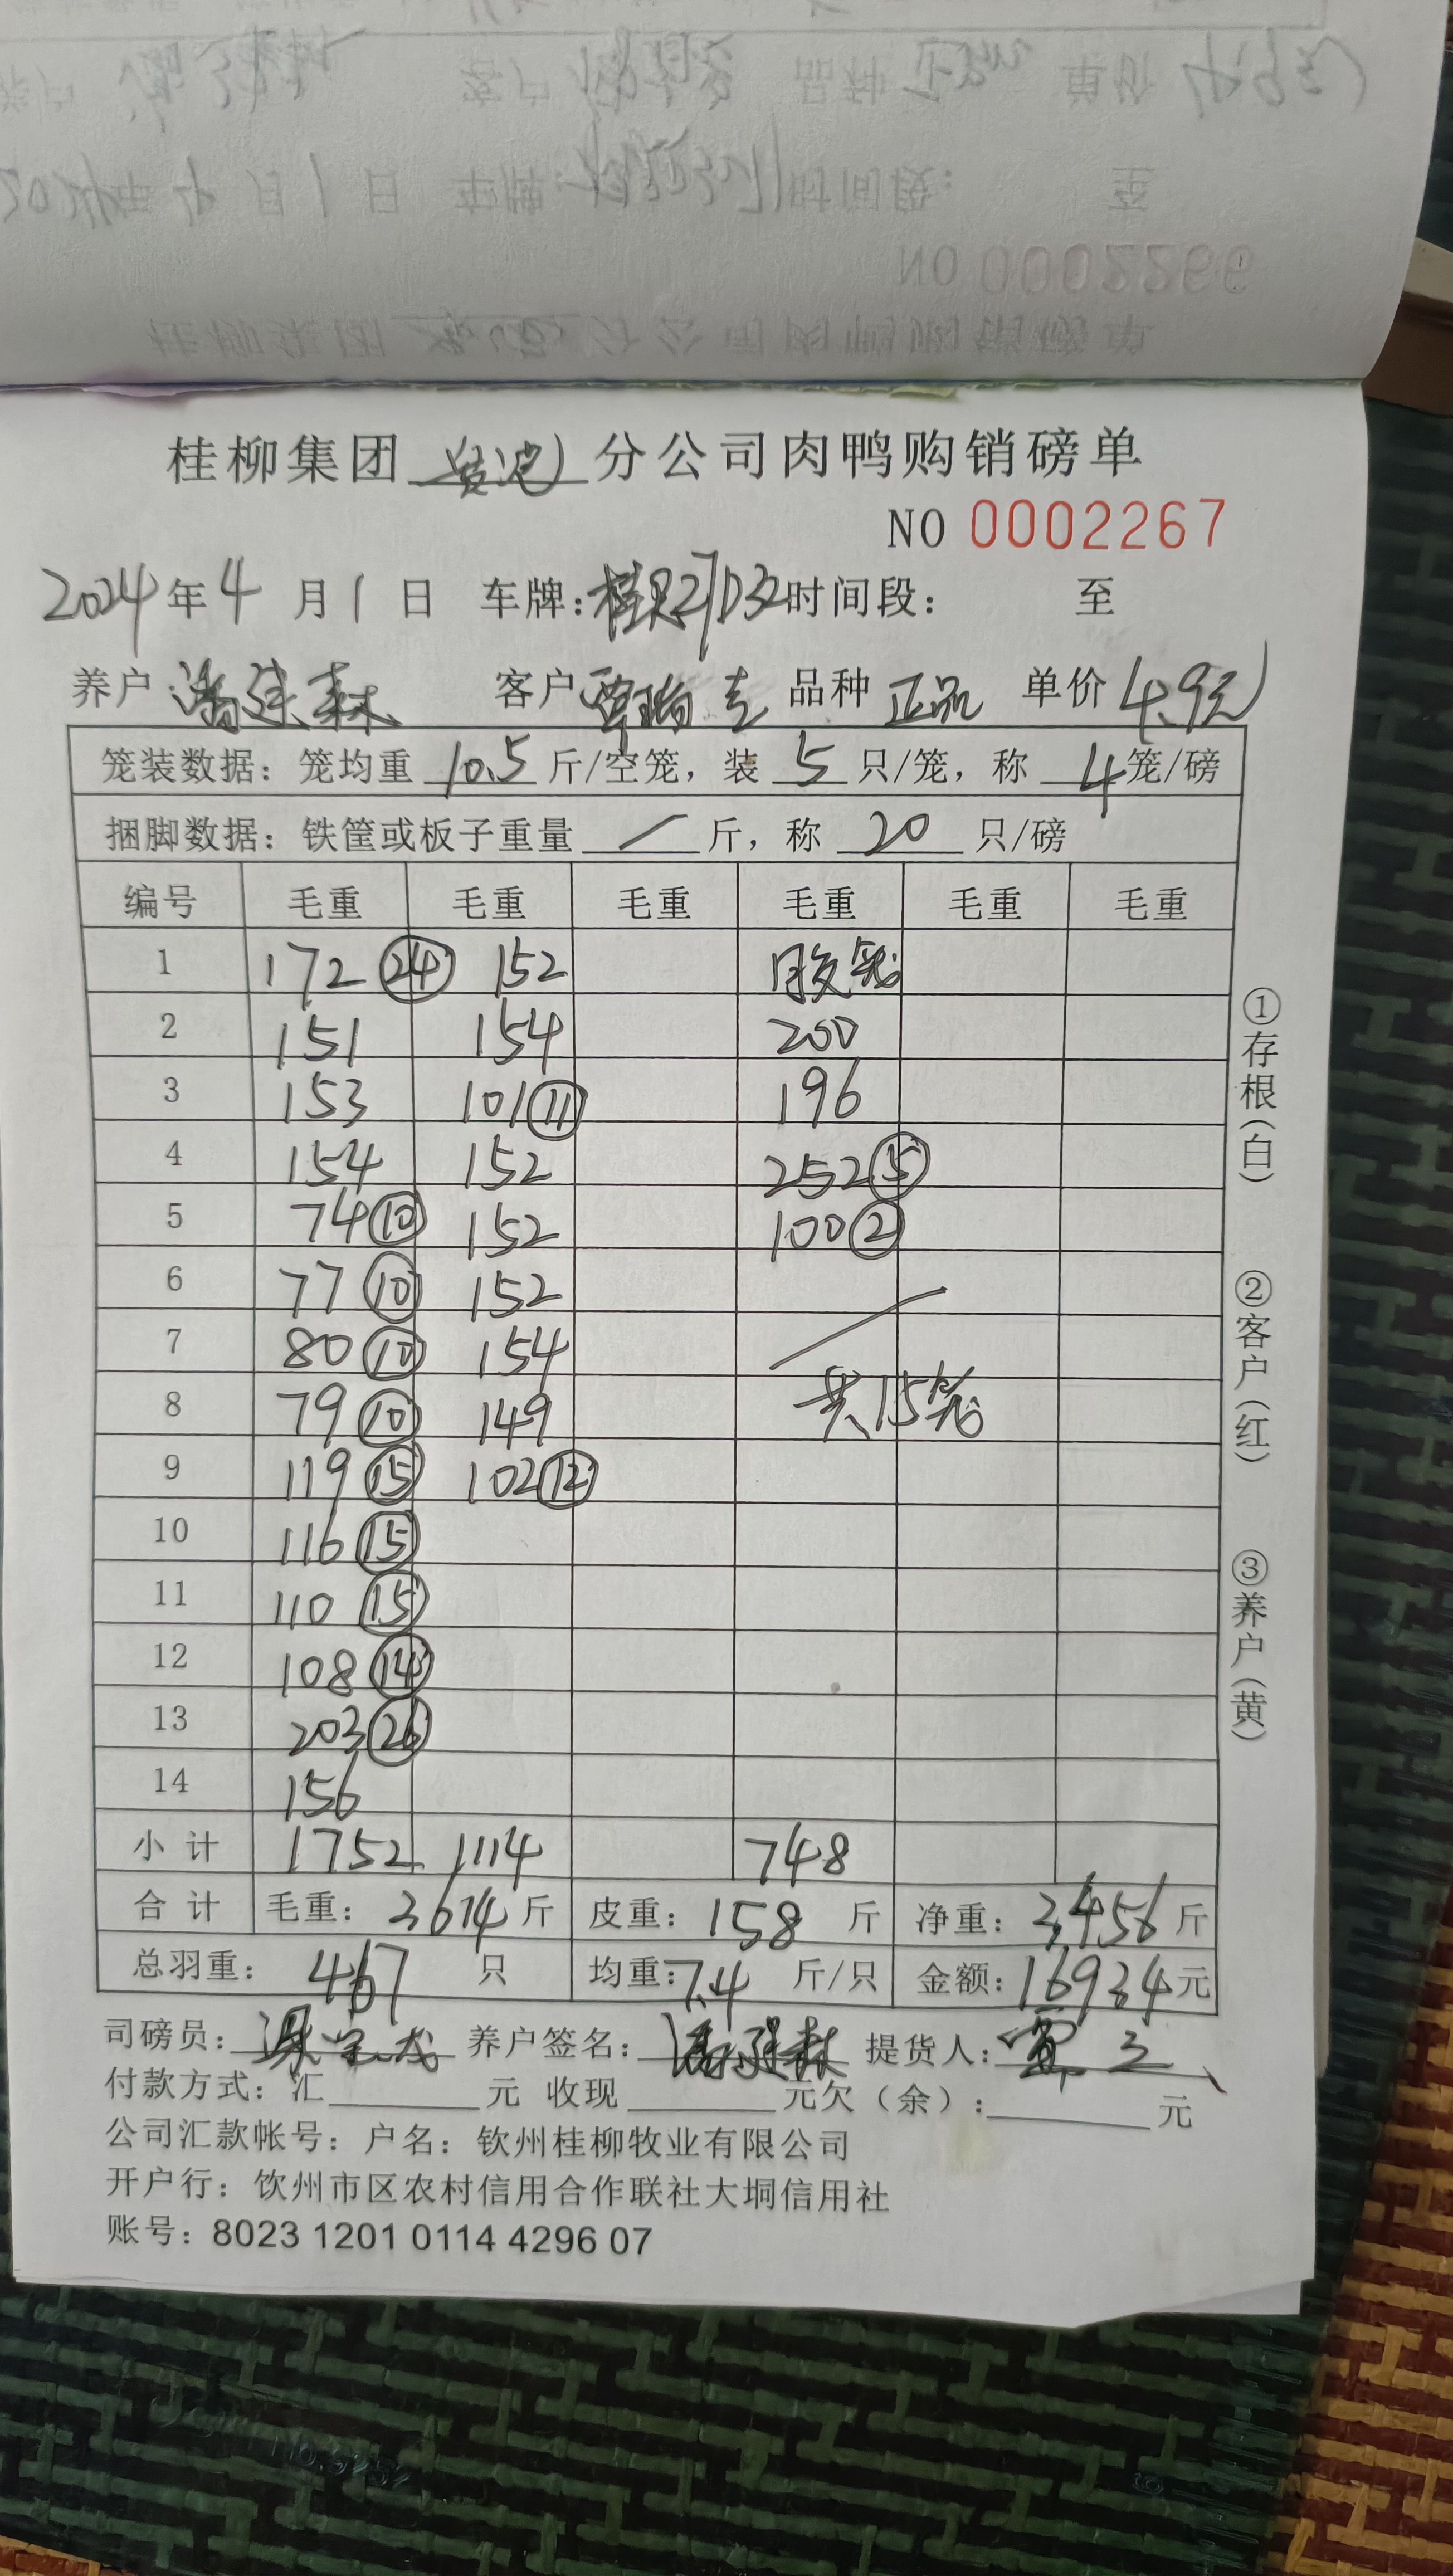 桂柳集团 分公司肉鸭购销磅单
NO 0002267
2024年4月1日 车牌: 时间段: 至
养户 潘廷森 客户 覃瑞 品种 正品 单价 4.9元
笼装数据：笼均重 10.5 斤/空笼，装 5 只/笼，称 4 笼/磅
捆脚数据：铁筐或板子重量 / 斤，称 20 只/磅
编号 毛重 毛重 毛重 毛重 毛重 毛重
1 172 ㉔ 152
2 151 154 200
3 153 101 ⑪ 196
4 154 152 252 ⑤
5 74 ⑩ 152 100 ②
6 77 ⑩ 152
7 80 ⑩ 154
8 79 ⑩ 149 共15笼
9 119 ⑮ 102 ⑫
10 116 ⑮
11 110 ⑮
12 108 ⑭
13 203 ㉖
14 156
小计 1752 1114 748
合计 毛重：3614斤 皮重：158 斤 净重：3456斤
总羽重：467 只 均重：7.4 斤/只 金额：16934元
司磅员： 养户签名：潘廷森 提货人：
付款方式：汇 元 收现 元欠（余）： 元
公司汇款帐号：户名：钦州桂柳牧业有限公司
开户行：饮州市区农村信用合作联社大垌信用社
账号：8023 1201 0114 4296 07
①存根（白）
②客户（红）
③养户（黄）